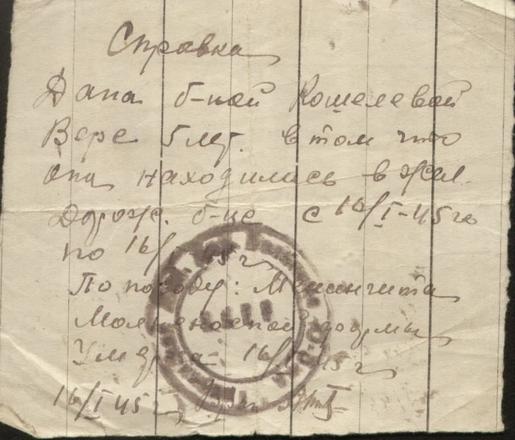 Справка
Дана б-ной Кошелевой
Вере 5 лет. в том что
она находились в жел.
Дорож. б-це с 16/I-45 го
по 16/ 45 г
По поводу: Менингита
формы
Умерла 16/ 45 г
16/I 45 Врач